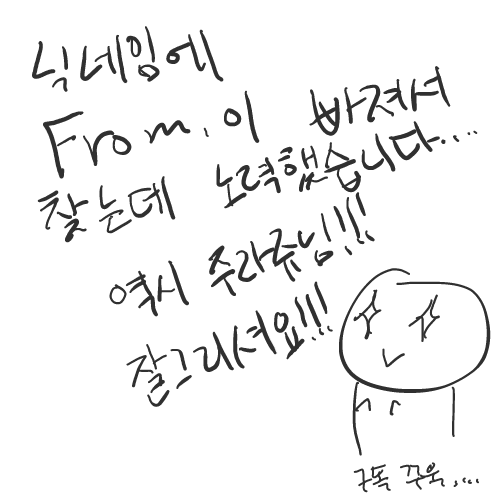 닉네임에
From.이 빠져서
찾는데 노력했습니다....
역시 주라쥬님!!!
잘그리셔요!!!
구독 꾸욱....